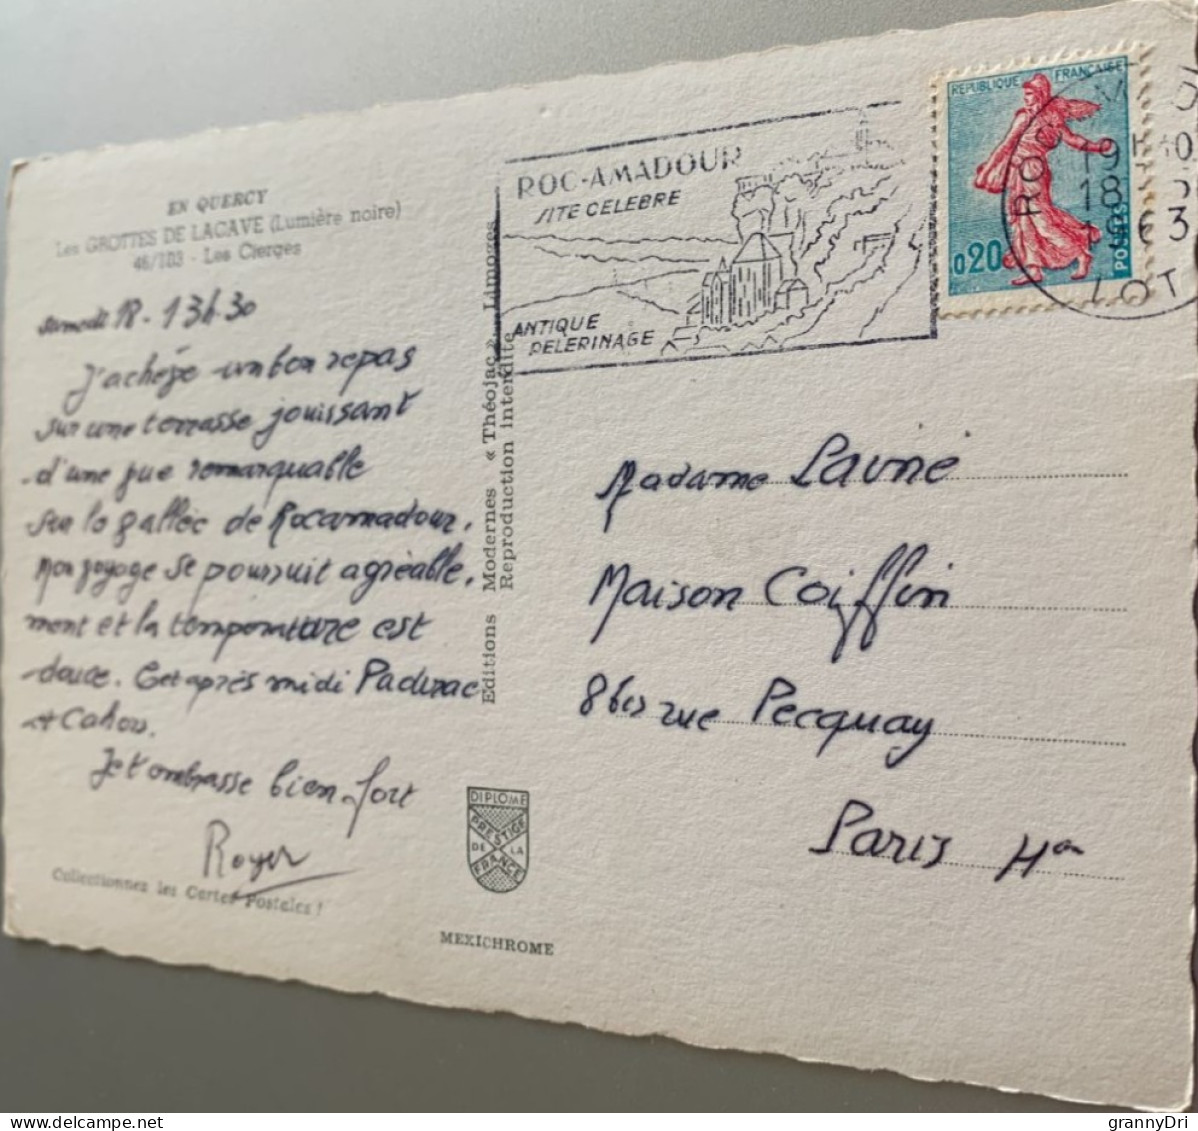 EN QUERCY
Les GROTTES DE LACAVE (Lumière noire)
46/103 - Les Cierges
samedi 18 - 13h30
J'achève un bon repas
sur une terrasse jouissant
d'une vue remarquable
sur la vallée de Rocamadour.
Mon voyage se poursuit agréable.
ment et la température est
douce. Cet après midi Padirac
et Cahors.
Je t'embrasse bien fort
Roger
Collectionnez les Cartes Postales !
Editions Modernes « Théojac », Limoges
Reproduction interdite
DIPLOME
PRESTIGE
DE LA
FRANCE
MEXICHROME
ROC-AMADOUR
SITE CELEBRE
ANTIQUE
PELERINAGE
REPUBLIQUE FRANÇAISE
0,20
POSTES
19H30
18 5
1963
LOT
Madame Lavné
Maison Coiffin
8 bis rue Pecquay
Paris 4em
grannyDri